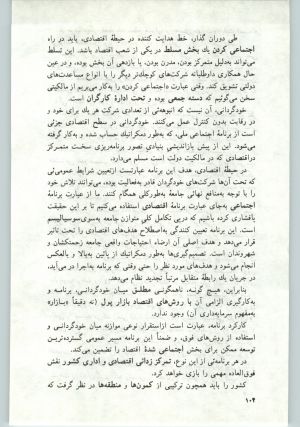 طی دوران گذار، خط هدایت کننده در حیطهٔ اقتصادی، باید در راه
اجتماعی کردن یك بخش مسلط در یکی از شعب اقتصاد باشد. این تسلط
می‌تواند به‌دلیل متمرکز بودن، مدرن بودن، یا بازدهی آن بخش بوده، و در عین
حال همکاری داوطلبانهٔ شرکت‌های کوچك‌تر دیگر را با انواع مساعدت‌های
دولتی تشویق کند. وقتی عبارت «اجتماعی کردن» را به‌کار می‌بریم از مالکیتی
سخن می‌گوئیم که دسته جمعی بوده و تحت ادارهٔ کارگران است.
خودگردانی، آن نیست که انبوهه‌ئی از تعدادی شرکت هر یك برای خود و
در رقابت بدون کنترل عمل می‌کنند. خودگردانی در سطح اقتصادی جزئی
است از برنامهٔ اجتماعی ملی، که به‌طور دمکراتیك حساب شده و به‌کار گرفته
می‌شود. این از پیش بازاندیشی بنیادی تصور برنامه‌ریزی سخت متمرکز
دراقتصادی که در مالکیت دولت است مسلم می‌دارد.
در حیطهٔ اقتصادی، هدف این برنامه عبارتست ازتعیین شرایط عمومی‌ئی
که تحت آن‌ها شرکت‌های خودگردان قادر به‌فعالیت بوده، می‌توانند تلاش خود
را با توجه به‌منافع نهائی جامعهٔ به‌طورکلی همگام کنند. ما از عبارت برنامهٔ
اجتماعی به‌جای عبارت برنامهٔ اقتصادی استفاده می‌کنیم تا بر این حقیقت
پافشاری کرده باشیم که درپی تکامل کلی متوازن جامعه به‌سوی سوسیالیسم
است. این برنامه تعیین کنندگی به‌اصطلاح هدف‌های اقتصادی را تحت تاثیر
قرار می‌دهد و هدف اصلی آن ارضاء احتیاجات واقعی جامعه زحمتکشان و
شهروندان است. تصمیم‌گیری‌ها به‌طور دمکراتیك از پائین به‌بالا و بالعکس
انجام می‌شود و هدف‌های مورد نظر را حتی وقتی که برنامه به‌اجرا در می‌آید،
در جریان یك رابطهٔ متقابل مرتباً تجدید نظام می‌دهد.
بنابراین، هیچ گونه، ناهمگونی مطلق میان خودگردانی، برنامه و
به‌کارگیری الزامی آن با روش‌های اقتصاد بازار پول (نه دقیقاً «بازار»به
به‌مفهوم سرمایه‌داری آن) وجود ندارد.
کارکرد برنامه، عبارت است ازاستقرار نوعی موازنه میان خودگردانی و
استفاده از روش‌های فوق، و ضمناً این برنامه مسیر عمومی گسترده‌ترین
توسعه ممکن برای بخش اجتماعی شدهٔ اقتصاد را تضمین می‌کند.
در هر برنامه‌ئی از این نوع، تمرکز زدائی اقتصادی و اداری کشور نقش
فوق‌العاده مهمی را بازی خواهد کرد.
کشور را باید همچون ترکیبی از کمون‌ها و منطقه‌ها در نظر گرفت که
۱۰۴